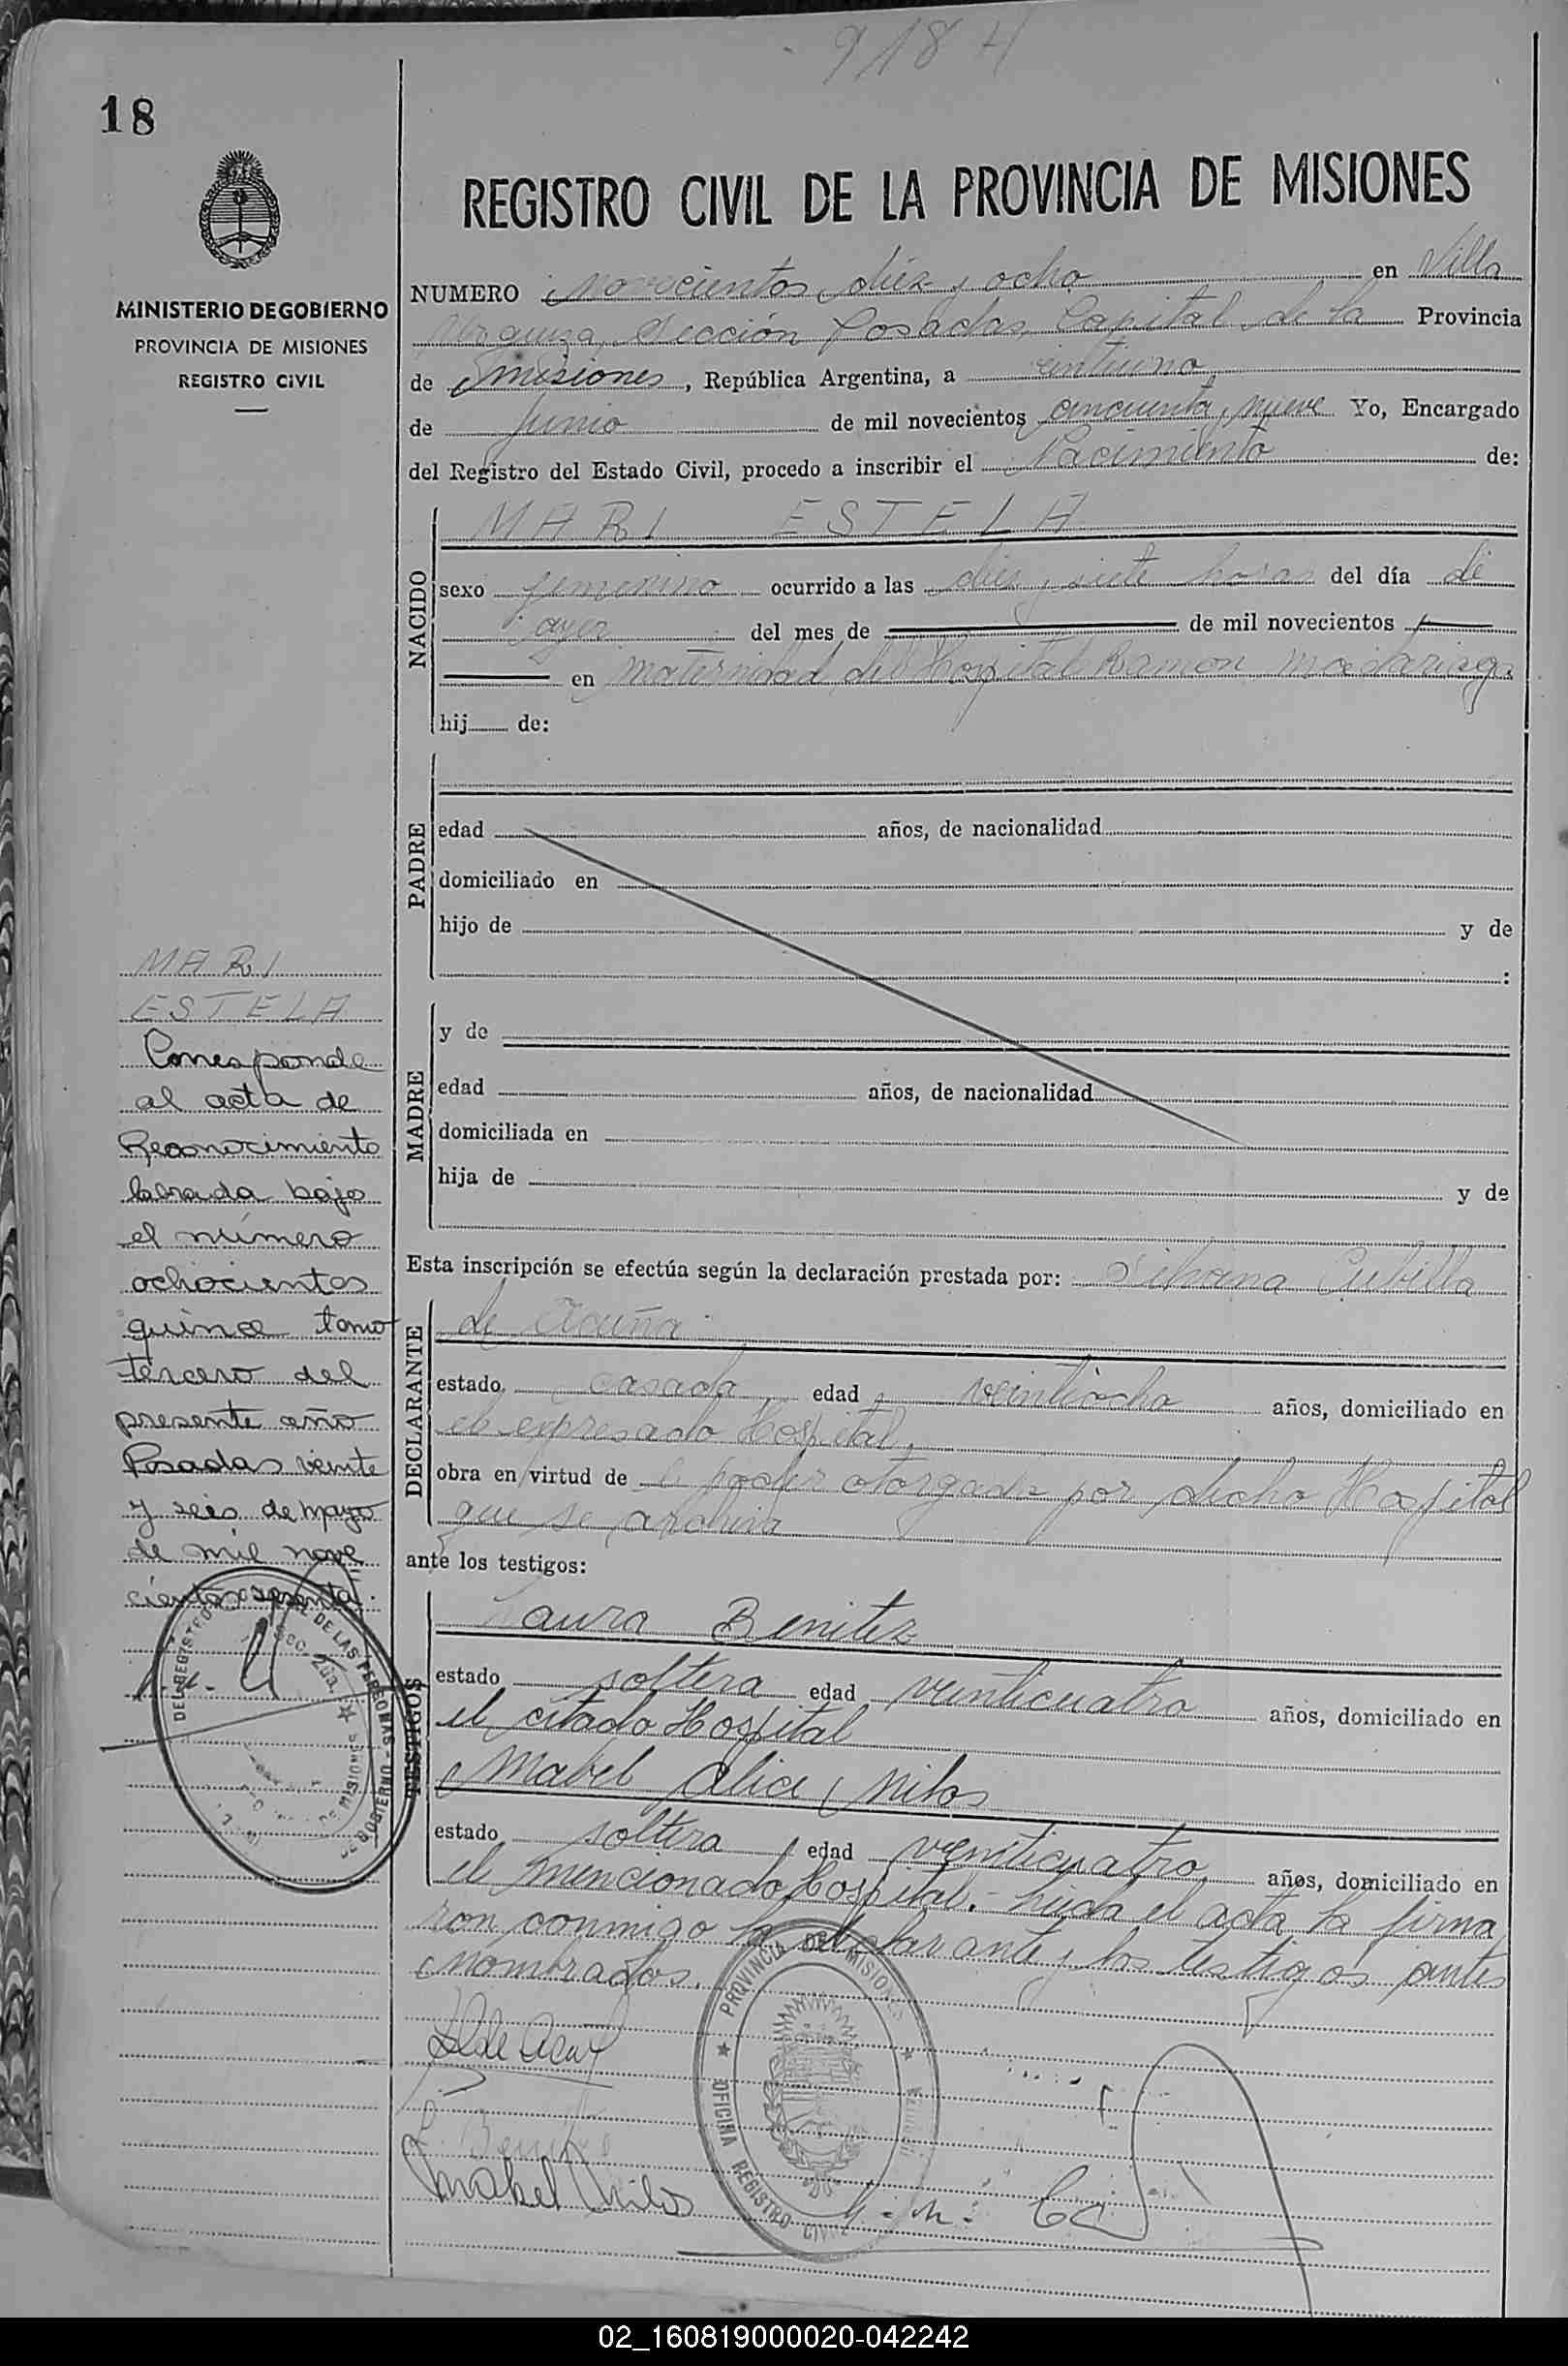 9184
18
MINISTERIO DE GOBIERNO
PROVINCIA DE MISIONES
REGISTRO CIVIL
REGISTRO CIVIL DE LA PROVINCIA DE MISIONES
NUMERO novecientos diez y ocho en Villa
Urquiza, Sección Posadas, Capital de la Provincia
de misiones, República Argentina, a veintiuno
de Junio de mil novecientos cincuenta y nueve Yo, Encargado
del Registro del Estado Civil, procedo a inscribir el Nacimiento de:
NACIDO
MARI ESTELA
sexo femenino ocurrido a las diez y siete horas del día de
ayer del mes de de mil novecientos
en maternidad del Hospital Ramon madariaga
hij de:
PADRE
edad años, de nacionalidad
domiciliado en
hijo de y de
:
MADRE
y de
edad años, de nacionalidad
domiciliada en
hija de y de
Esta inscripción se efectúa según la declaración prestada por: Cubilla
DECLARANTE
de Acuña
estado casada edad veintiocho años, domiciliado en
el expresado Hospital,
obra en virtud de poder otorgado por dicho Hospital
que se archiva
ante los testigos:
TESTIGOS
Laura Benitez
estado soltera edad veinticuatro años, domiciliado en
el citado Hospital
Mabel Alice Milos
estado soltera edad veinticuatro años, domiciliado en
el mencionado Hospital.- Leída el acta la firma
ron conmigo la declarante y los testigos antes
nombrados.
MARI
ESTELA
Corresponde
al acta de
Reconocimiento
labrada bajo
el número
ochocientos
quince tomo
tercero del
presente año
Posadas veinte
y seis de mayo
de mil nove
cientos sesenta.
DEL REGISTRO DE LAS PERSONAS - GOBIERNO
DE MISIONES
PROVINCIA DE MISIONES
OFICINA REGISTRO CIVIL
L. Benitez
Mabel Milos
02_160819000020-042242